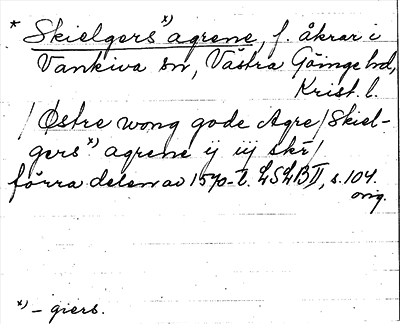 * Skielgers x) agrene, f. åkrar i
Vankiva sn, Västra Göinge hd,
Krist. l.
/Østre wong gode Agre/Skiel-
gers x) agrene ij iij skr/
förra delen av 1570-t. LSLB II, s. 104.
orig.
x) – giers.